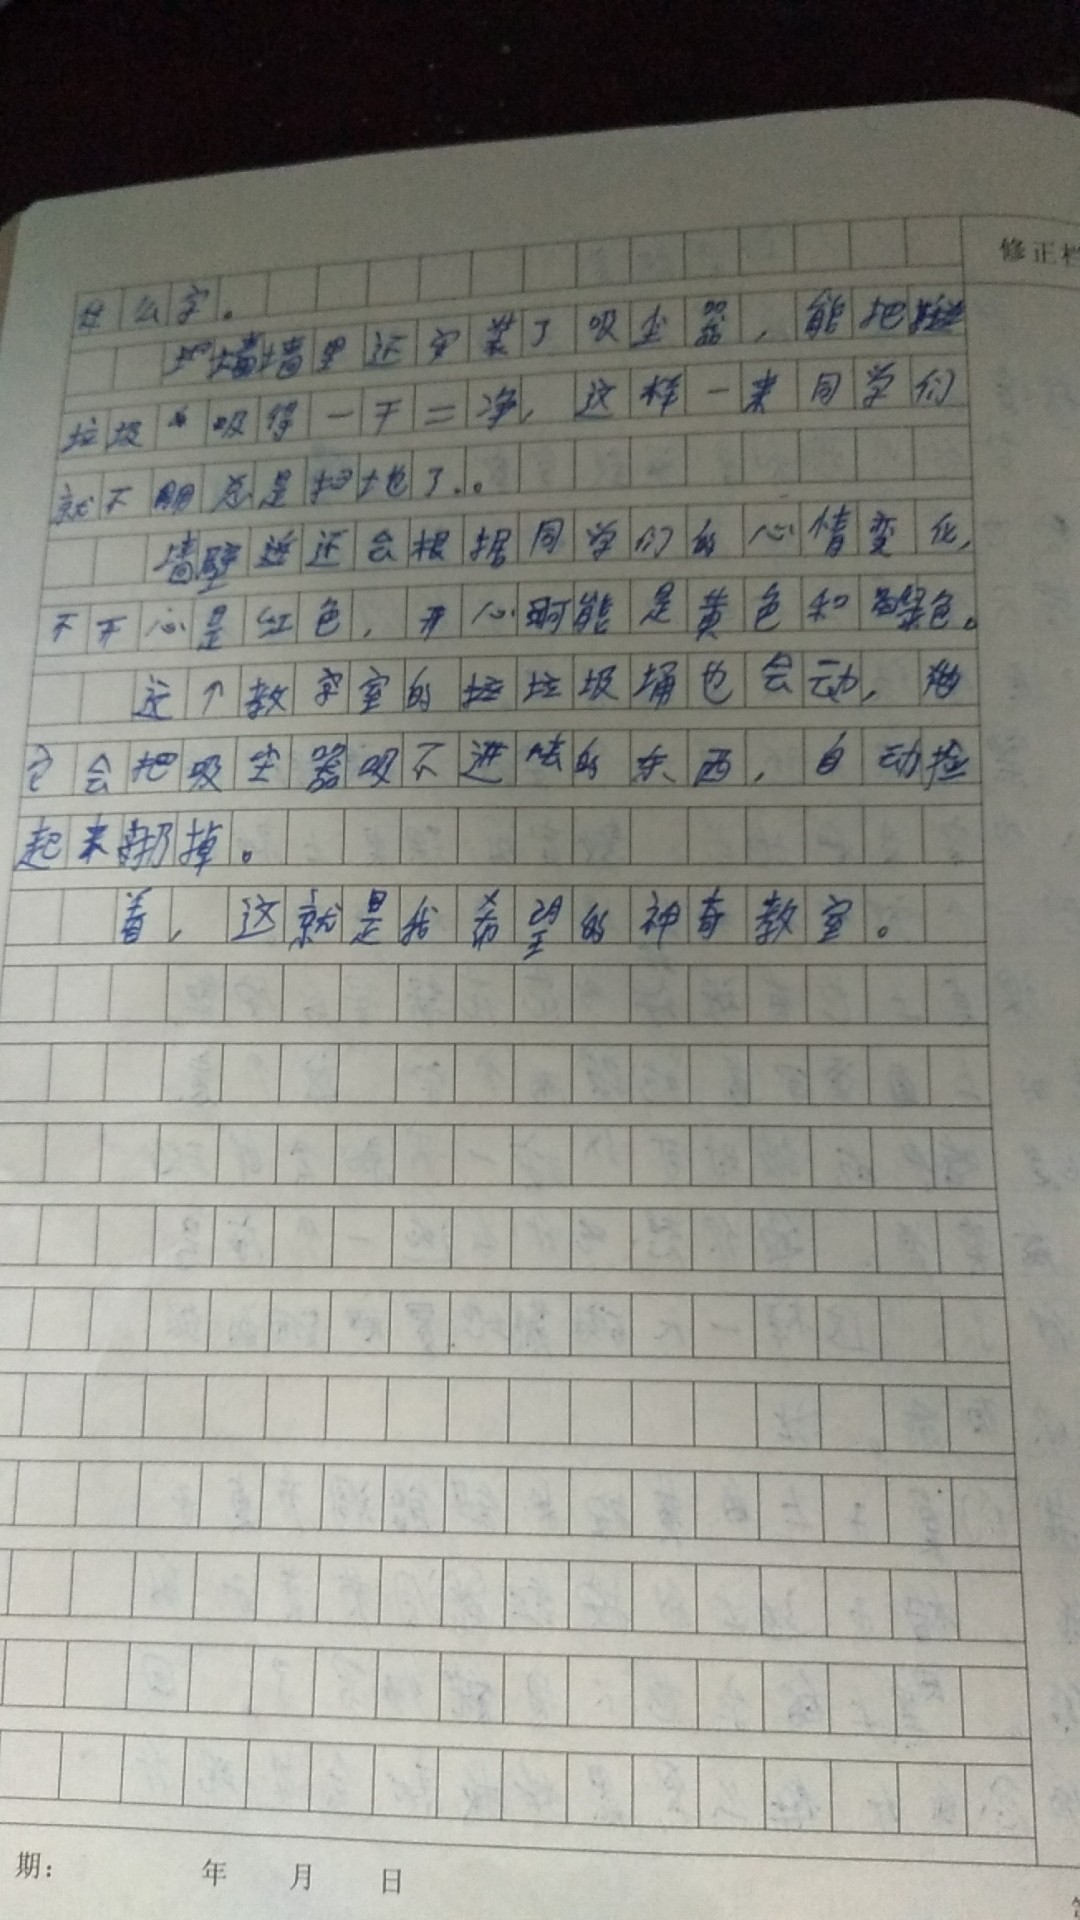 修正栏
什么字。
墙里还安装了吸尘器，能把
垃圾吸得一干二净，这样一来同学们
就不用总是扫地了。
墙壁还会根据同学们的心情变化，
不开心是红色，开心可能是黄色和绿色。
这个教室的垃圾桶也会动，
它会把吸尘器吸不进去的东西，自动捡
起来扔掉。
看，这就是我希望的神奇教室。
期： 年 月 日